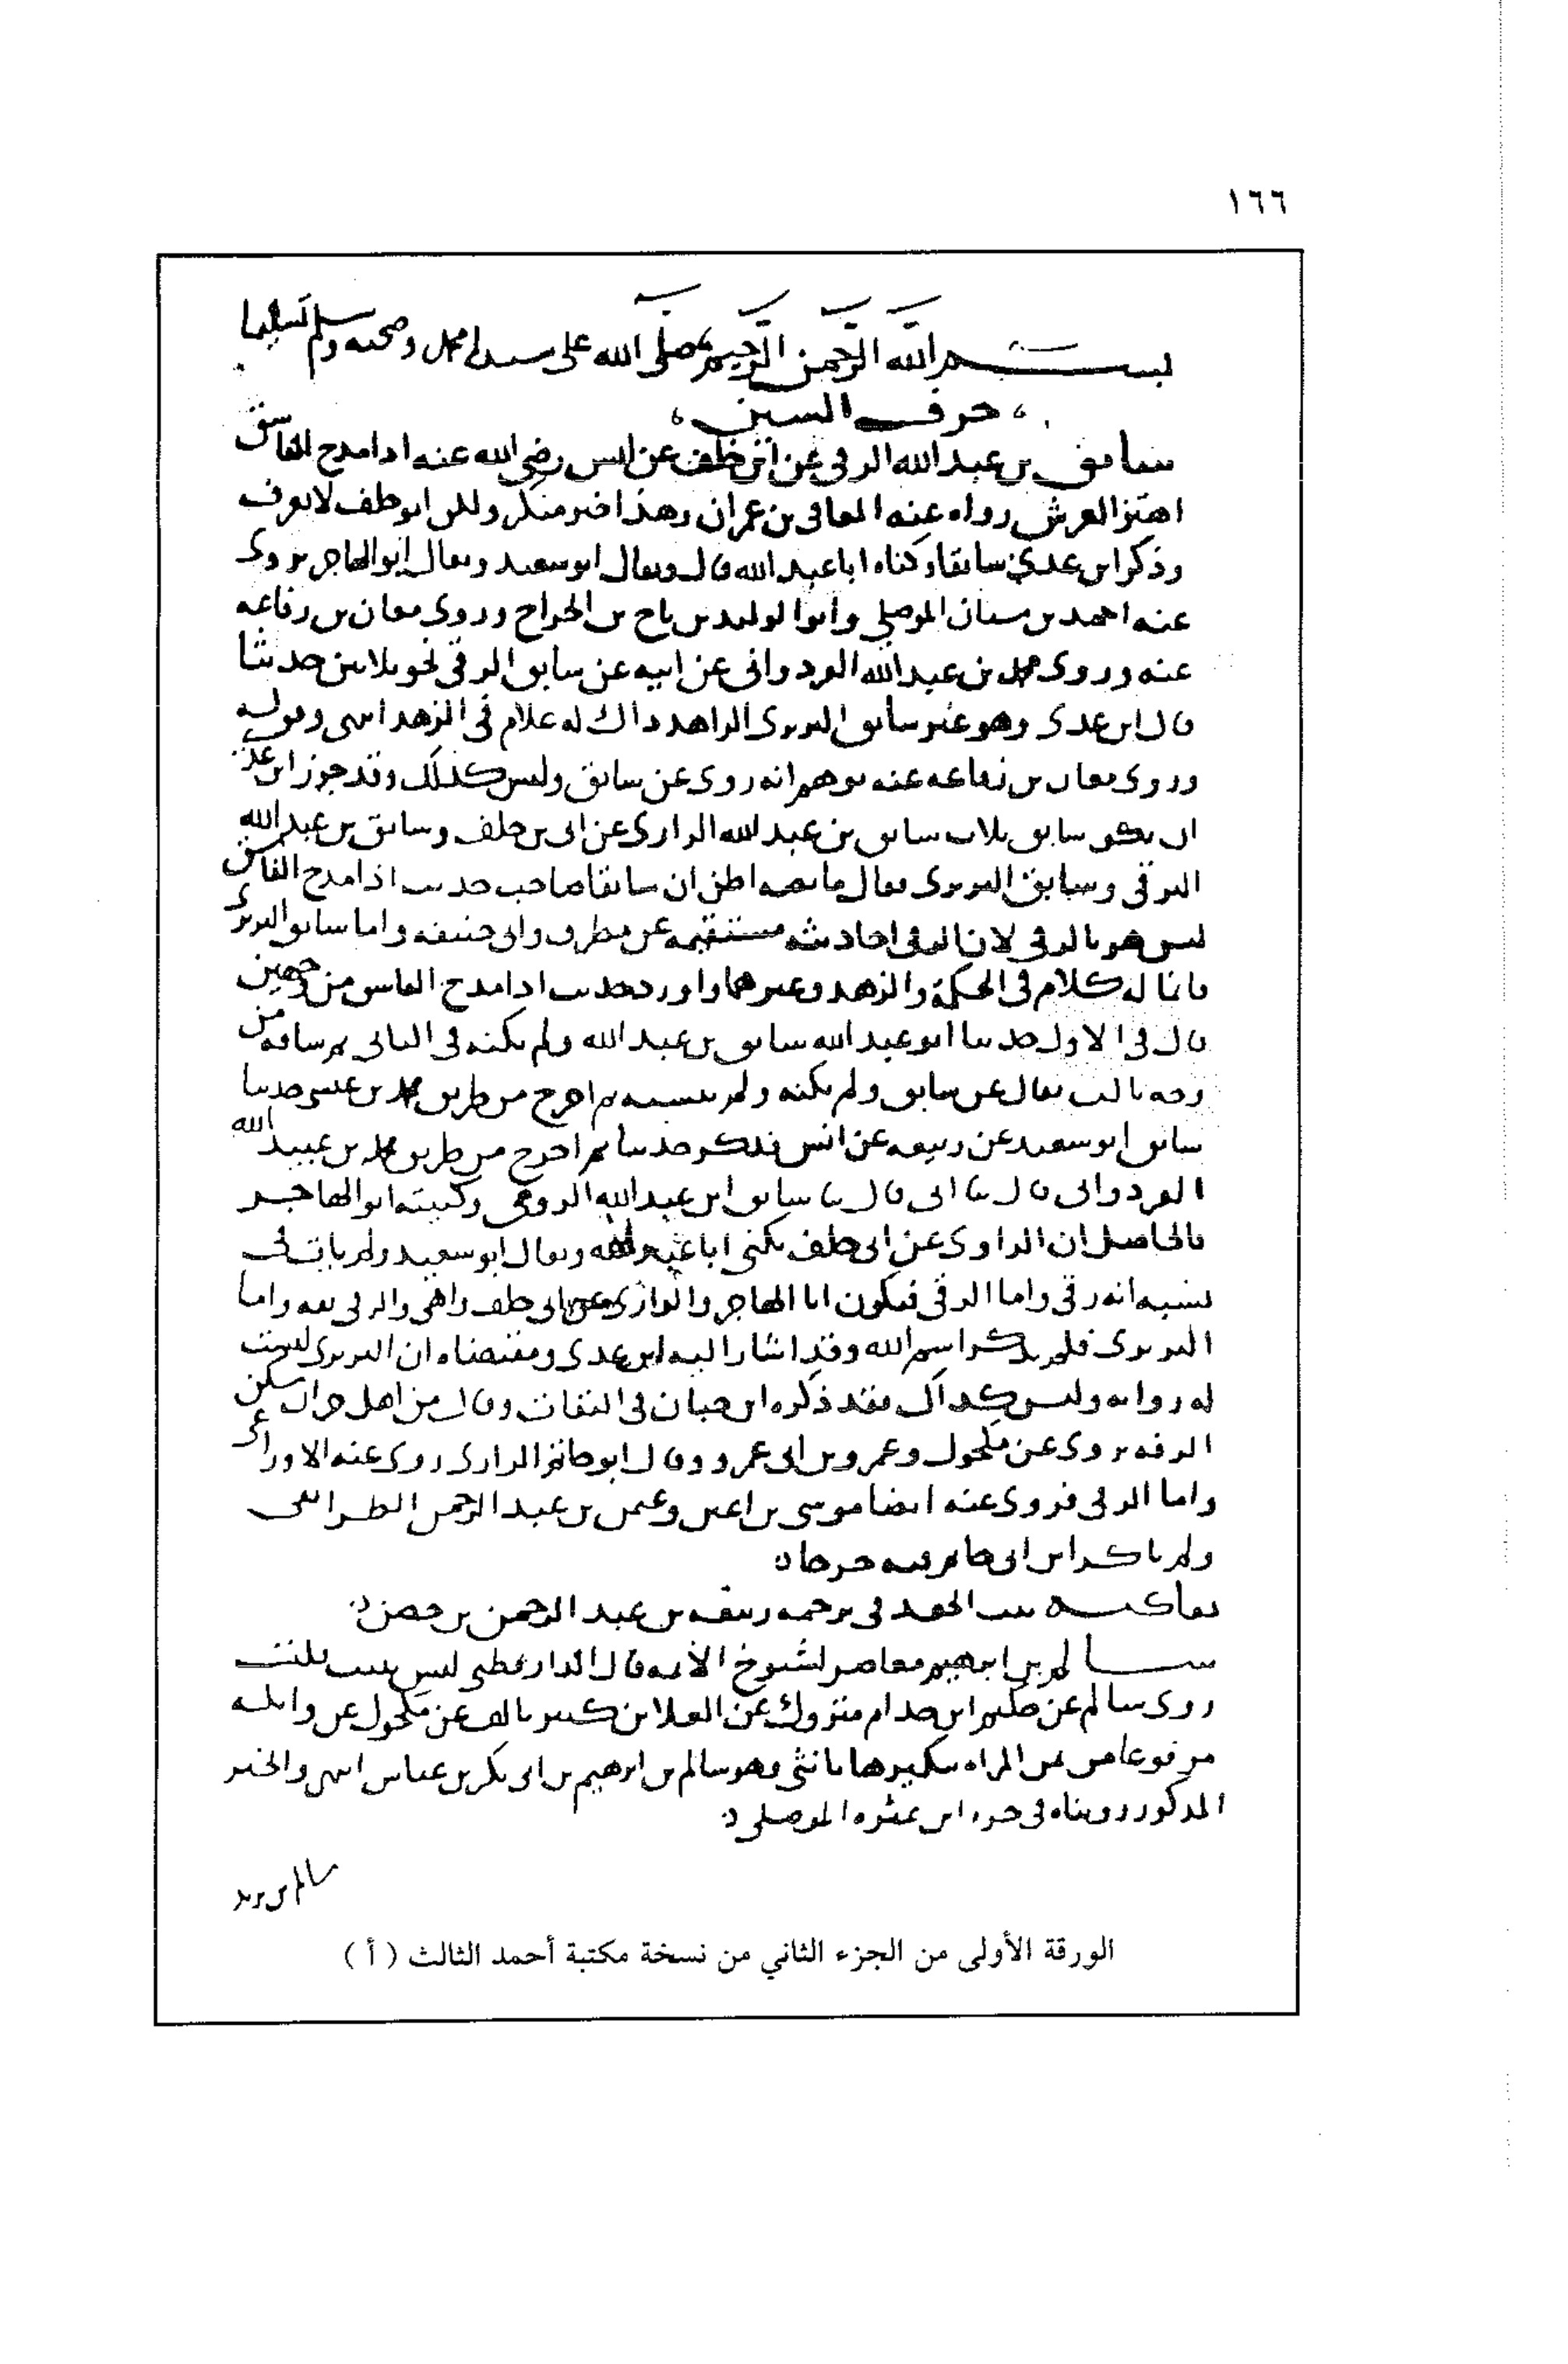 ١٦٦
بسم الله الرحمن الرحيم وصلى الله على سيدنا محمد وصحبه وسلم تسليما
حرف السين
سابق بن عبد الله الرقي عن ابي خلف عن انس رضي الله عنه اذا مدح الفاسق
اهتز العرش رواه عنه المعافى بن عمران وهذا خبر منكر ولكن ابو خلف لا يعرف
وذكر ابن عدي سابقا وكناه ابا عبد الله قال ويقال ابو سعيد ويقال ابو المهاجر يروى
عنه احمد بن سنان الموصلي وابو الوليد بن الجراح وروى معان بن رفاعه
عنه وروى محمد بن عبيد الله القردواني عن ابيه عن سابق الرقي نحو ثلاثين حديثا
قال ابن عدى وهو غير سابق البربرى الزاهد ذاك له كلام في الزهد انتهى وقوله
وروى معان بن رفاعه عنه يوهم انه روى عن سابق وليس كذلك وقد جوز ابن عدي
ان يكون سابق ثلاث سابق بن عبد الله الراوى عن ابى خلف وسابق بن عبد الله
الرقي وسابق البربرى فقال ما نصه اظن ان سابقا صاحب حديث اذا مدح الفاسق
ليس هو بالرقي لان الرقي احاديثه مستقيمه عن مطرف وابى حنيفه واما سابق البربرى
فانما له كلام في الحكمة والزهد وغيرهما واورد حديث اذا مدح الفاسق من وجهين
قال في الاول حدثنا ابو عبد الله سابق بن عبد الله ولم يكنه في الثاني ثم ساقه من
وجه ثالث فقال عن سابق ولم يكنه ولم ينسبه ثم اخرج من طريق محمد بن عيسى حدثنا
سابق ابو سعيد عن ربيعه عن انس فذكر حديثا ثم اخرج من طريق محمد بن عبيد الله
القردوانى قال ثنا ابى قال ثنا سابق ابن عبد الله الرقى وكنيته ابو المهاجر
فالحاصل ان الراوى عن ابى خلف يكنى ابا عبد الله ويقال ابو سعيد ولم يات في
نسبه انه رقي واما الرقي فيكون ابا المهاجر والراوى عن ابى خلف واهى والرقي ثقه واما
البربرى فلم يذكر اسم الله وقد اشار اليه ابن عدى ومقتضاه ان البربرى ليست
له روايه وليس كذلك فقد ذكره ابن حبان في الثقات وقال من اهل حران سكن
الرقه يروى عن مكحول وعمرو بن ابى عمرو وقال ابو حاتم الرازى روى عنه الاوزاعى
واما الرقي فروى عنه ايضا موسى بن اعين وعثمن بن عبد الرحمن الطرائفى
ولم يذكر ابن ابى حاتم فيه جرحا
بن عبد الرحمن بن حصن
سالم بن ابرهيم معاصر لشيوخ الائمه قال الدارقطنى ليس بثبت قلت
روى سالم عن حكيم ابن خدام متروك عن العلا بن كثير تالف عن مكحول عن واثله
مرفوعا من يمن المراه تبكيرها بانثى وهو سالم بن ابرهيم بن ابى بكر بن عياش انتهى والخبر
المذكور رويناه في جزء ابن عثره الموصلي
سالم بن يزيد
الورقة الأولى من الجزء الثاني من نسخة مكتبة أحمد الثالث ( أ )